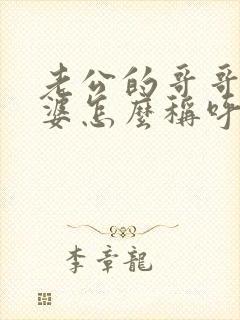 老公的哥哥
婆怎麼稱呼
李章龍